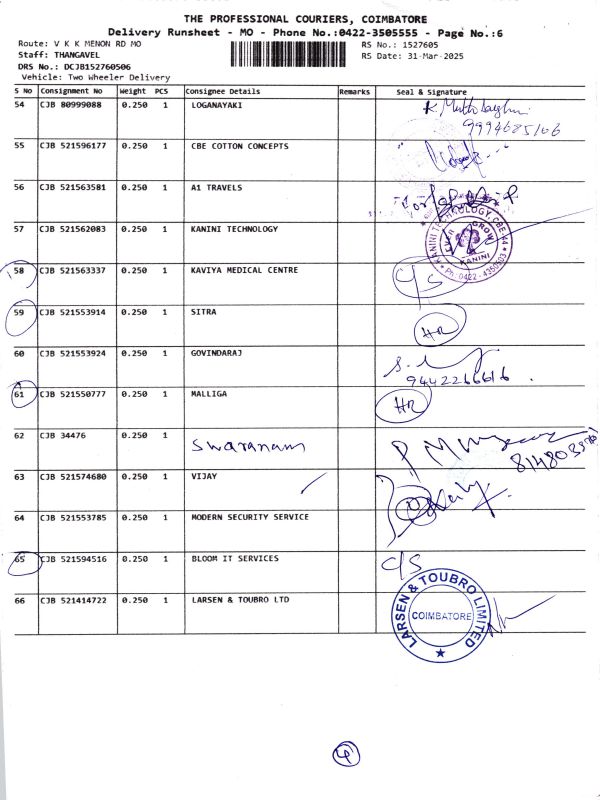 THE PROFESSIONAL COURIERS, COIMBATORE
Delivery Runsheet - MO - Phone No.:0422-3505555 - Page No.:6
Route: V K K MENON RD MO RS No.: 1527605
Staff: THANGAVEL RS Date: 31-Mar-2025
DRS No.: DCJB152760506
Vehicle: Two Wheeler Delivery
S No Consignment No Weight PCS Consignee Details Remarks Seal & Signature
54 CJB 80999088 0.250 1 LOGANAYAKI
55 CJB 521596177 0.250 1 CBE COTTON CONCEPTS
56 CJB 521563581 0.250 1 A1 TRAVELS
57 CJB 521562083 0.250 1 KANINI TECHNOLOGY
KANINI TECHNOLOGY, CBE-44
EVER GROW
KANINI
Ph: 0422 - 4350503
58 CJB 521563337 0.250 1 KAVIYA MEDICAL CENTRE C/S
59 CJB 521553914 0.250 1 SITRA HR
60 CJB 521553924 0.250 1 GOVINDARAJ
9442266616
61 CJB 521550777 0.250 1 MALLIGA HR
62 CJB 34476 0.250 1 Swaranam
63 CJB 521574680 0.250 1 VIJAY
64 CJB 521553785 0.250 1 MODERN SECURITY SERVICE
65 CJB 521594516 0.250 1 BLOOM IT SERVICES C/S
66 CJB 521414722 0.250 1 LARSEN & TOUBRO LTD
LARSEN & TOUBRO LIMITED
COIMBATORE
4